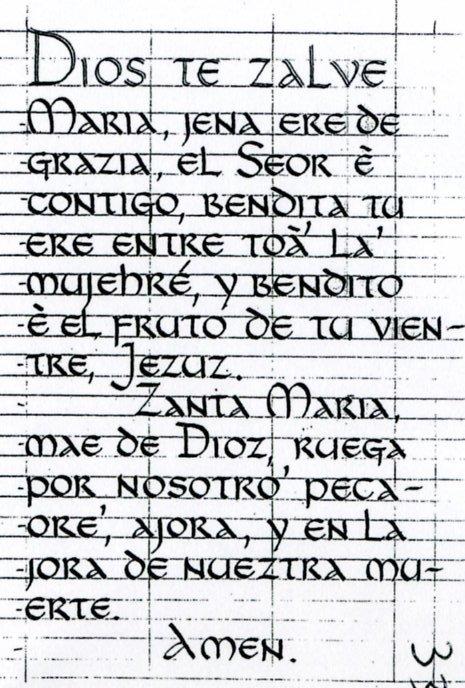 Dios te zalve
Maria, jena ere de
grazia, el Seor è
contigo, bendita tu
ere entre toà' la'
mujehré, y bendito
è el fruto de tu vien-
tre, Jezuz.
Zanta Maria,
mae de Dioz, ruega
por nosotro' peca-
ore', ajora, y en la
jora de nueztra mu-
erte.
Amen.